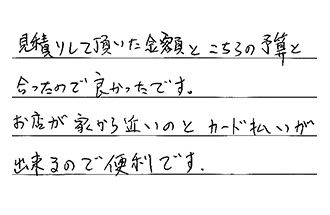 見積りして頂いた金額とこちらの予算と
合ったので良かったです。
お店が家から近いのとカード払いが
出来るので便利です.